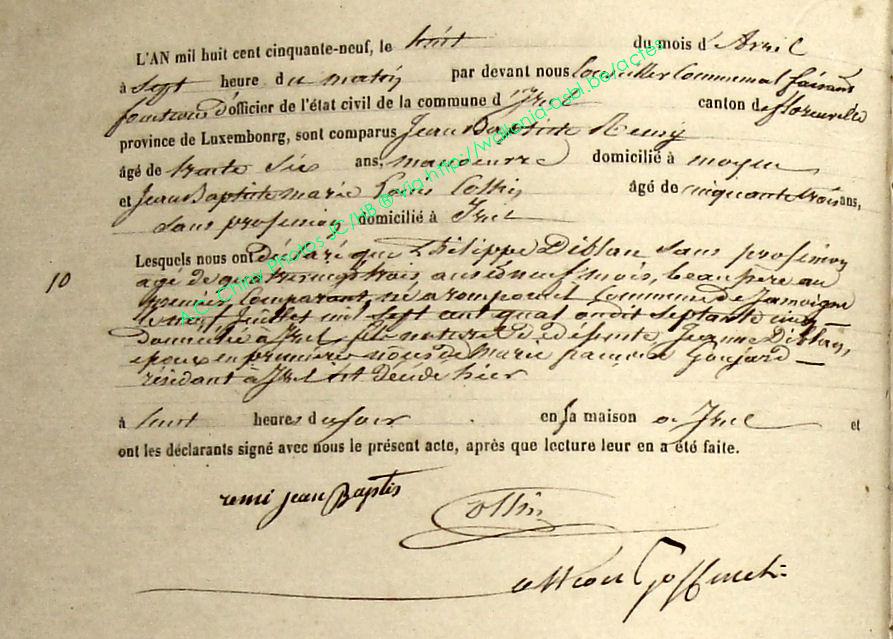 L'AN mil huit cent cinquante-neuf, le huit du mois d'Avril
à sept heure du matin par devant nous Conseiller Communal faisant
fonctions d'officier de l'état civil de la commune d'Izel canton de florenville
province de Luxembourg, sont comparus Jean Baptiste Remy
âgé de trente six ans, manoeuvre domicilié à moyen
et Jean Baptiste marie Louis Collin âgé de cinquante trois ans,
sans profession domicilié à Izel
Lesquels nous ont déclaré que Philippe Diblan sans profession
10
agé de quatrevingt trois ans neuf mois, beau pere au
premier Comparant, né a romponcel Commune de Jamoigne
le neuf Juillet mil sept cent septante cinq
domicilié a Izel fils naturel de défunte Jeanne Diblan,
epoux en premières noces de Marie françoise Goujard
résidant à Izel est décédé hier
à huit heures du soir en sa maison a Izel et
ont les déclarants signé avec nous le présent acte, après que lecture leur en a été faite.
remi jean Baptis
Collin
Goffinet
A.C. Chiny Photos JC/HB ® via http://wallonia-asbl.be/actes